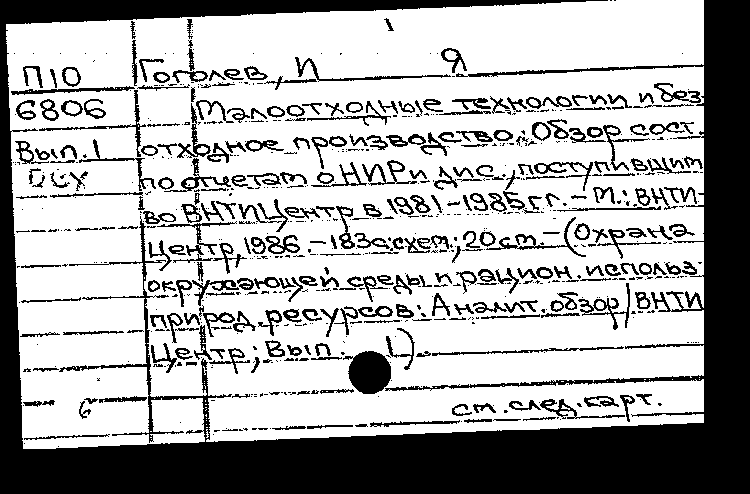 П10 Гоголев, И Я
6806 Малоотходные технологии и без-
Вып.1 отходное производство: Обзор сост.
ОСХ по отчетам о НИР и дис., поступившим
во ВНТИЦентр в 1981-1985 гг. - М.: ВНТИ-
Центр, 1986. - 183с: схем; 20см. - (Охрана
окружающей среды и рацион. использ.
природ. ресурсов: Аналит. обзор / ВНТИ
Центр; Вып. 1).
6 см. след. карт.